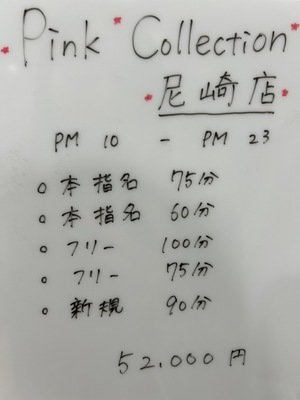 Pink Collection
尼崎店
PM 10 - PM 23
○ 本指名 75分
○ 本指名 60分
○ フリー 100分
○ フリー 75分
○ 新規 90分
52.000円